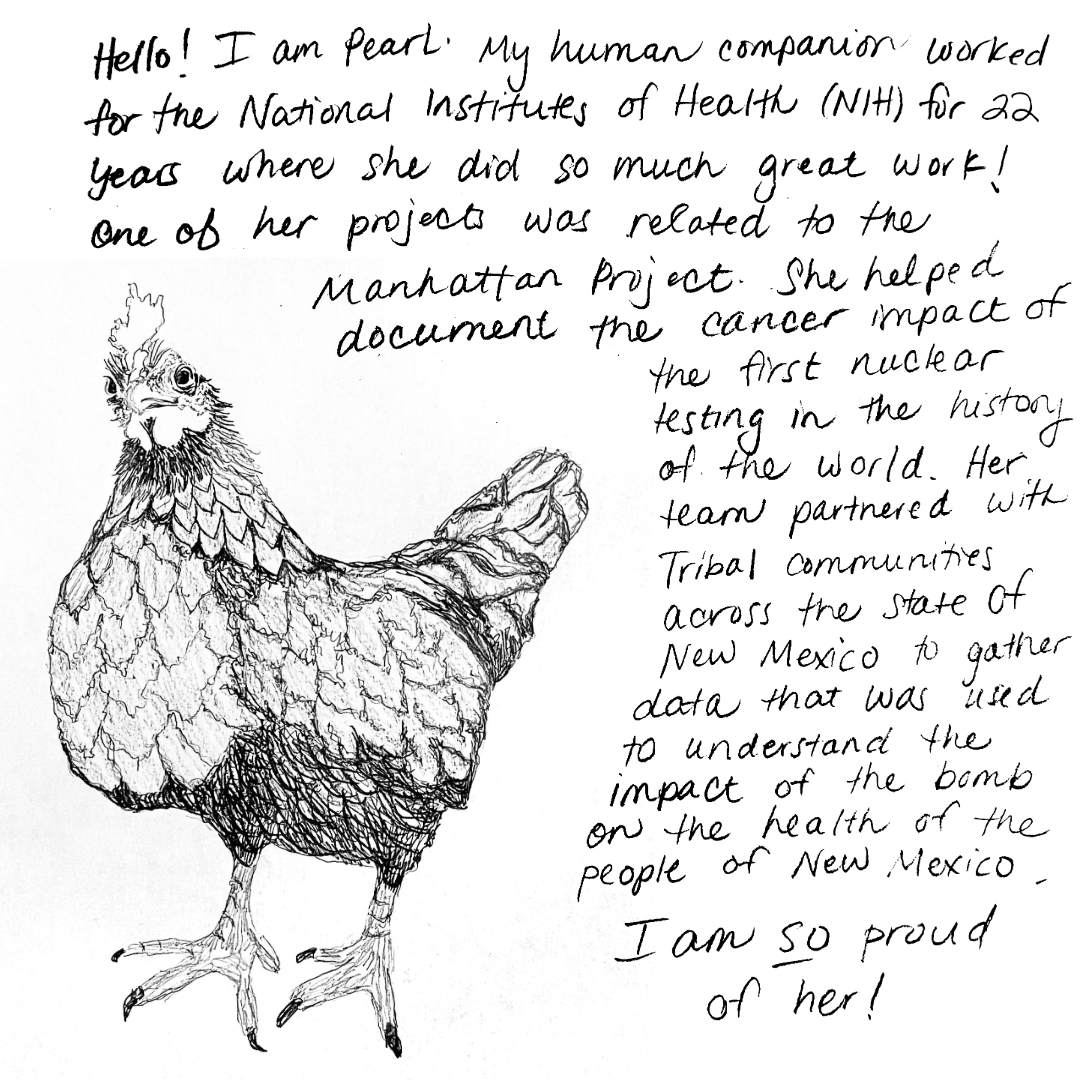 Hello! I am Pearl. My human companion worked
for the National Institutes of Health (NIH) for 22
years where she did so much great work!
One of her projects was related to the
Manhattan Project. She helped
document the cancer impact of
the first nuclear
testing in the history
of the world. Her
team partnered with
Tribal communities
across the state of
New Mexico to gather
data that was used
to understand the
impact of the bomb
on the health of the
people of New Mexico.
I am so proud
of her!